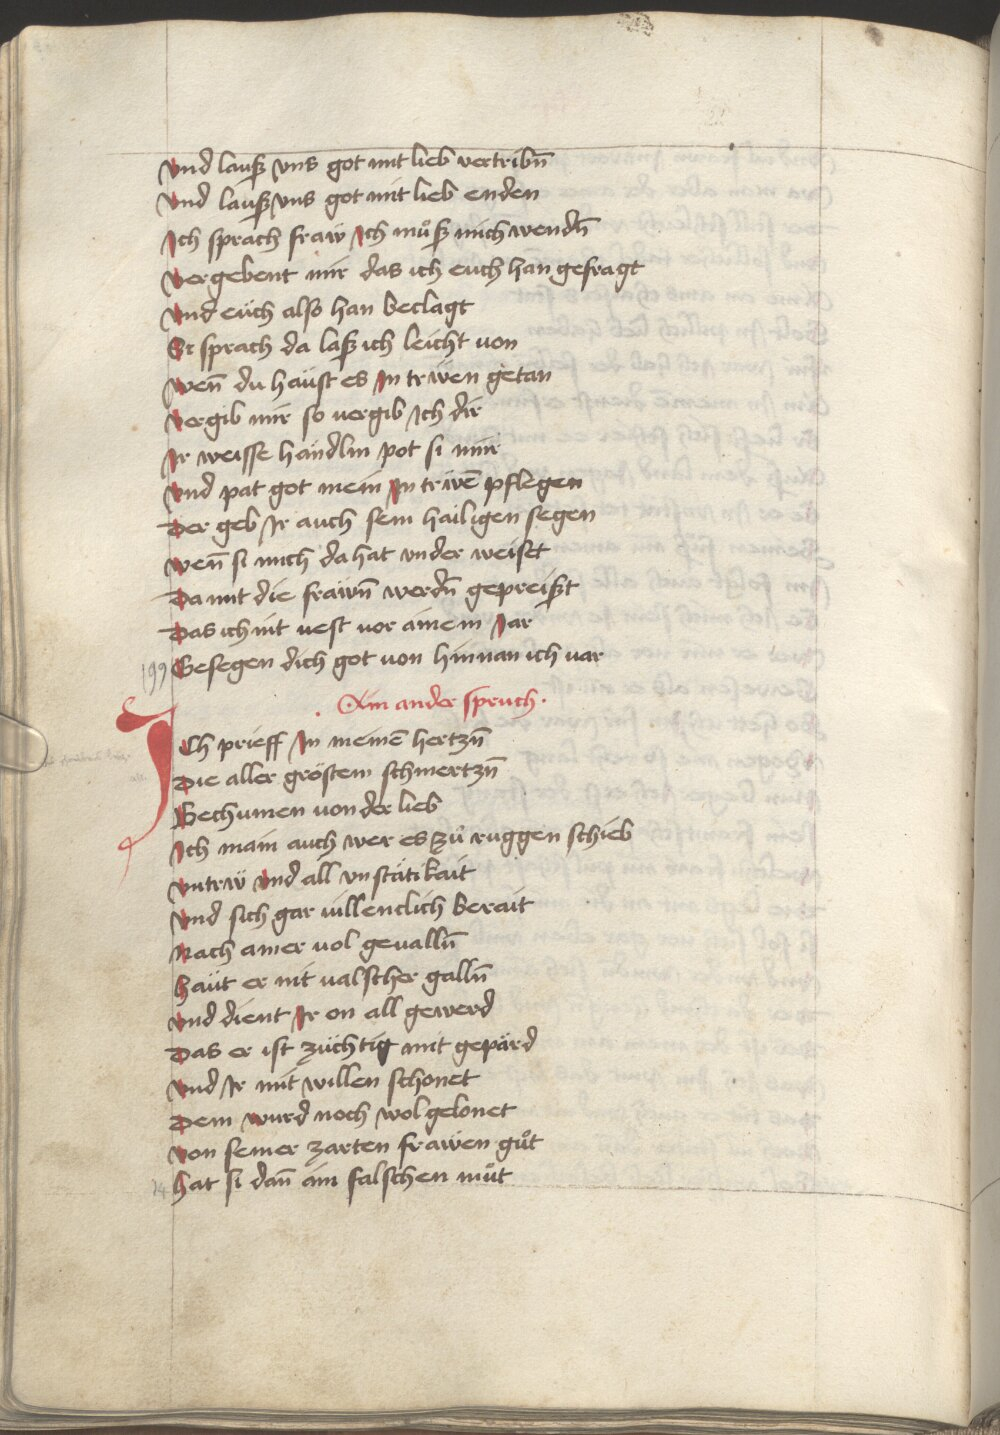 Vnd lausz vns got mit lieb vertribn̄
Vnd lausz vns got mit lieb enden
Ich sprach fraẅ Ich můsz mich wendn̄
Vergebent mir das ich euch han gefragt
Vnd eüch also han beclagt
Si sprach da lasz ich leicht von
Wen̄ du haüst es In trẅen getan
Vergib mir so uergib Ich dir
Ir weisse händlin pot si mir
Vnd pat got mein In trẅē pflegen
Der geb Ir auch sein hailigen segen
Wen̄ si mich da hat vnder weiset
Da mit die fraẅn̄ werdn̄ gepreiszt
Das ich nit uest vor ainem Jar
199 Gesegen dich got von hinnan ich var
Ain ander spruch.
ICh prieff In meinē hertzn̄
Die aller grösten schmertzn̄
Bechumen von der lieb
Ich main auch wer es zů ruggen schieb
Vntrẅ Vnd all vnstätikait
Vnd sich gar willenclich berait
Nach ainer wol geualln̄
Haüt er nit ualscher galln̄
Vnd dient Ir on all gewerd
Das er ist züchtig mit gepärd
Vnd Ir mit willen schonet
Dem wurd noch wol gelonet
Von seiner zarten fraẅen gůt
Hat si dan̄ ain falschen můt